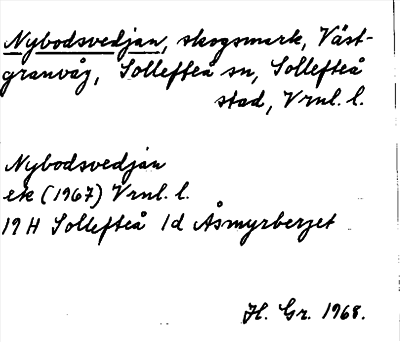 Nybodsvedjan, skogsmark, Väst-
granvåg, Sollefteå sn, Sollefteå
stad, Vrnl. l.
Nybodsvedjan
ek (1967) Vrnl. l.
19 H Sollefteå 1d Åsmyrberget
H. Gr. 1968.